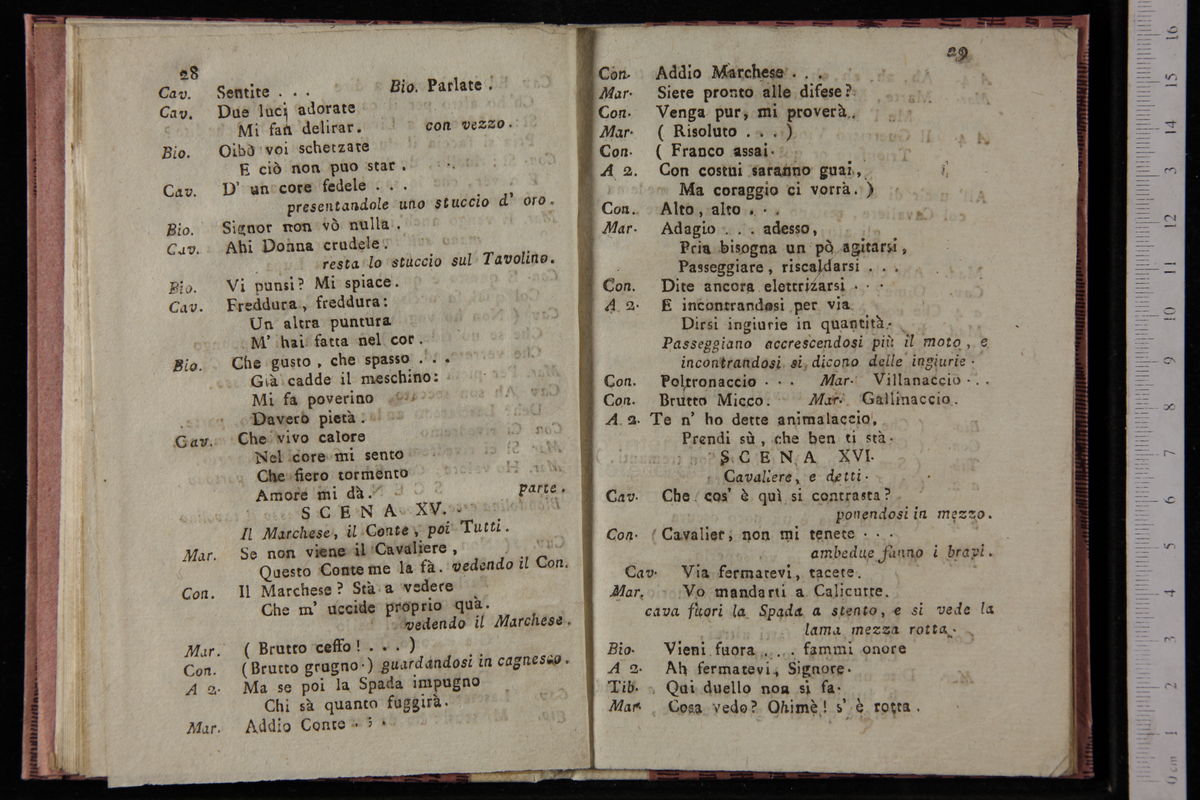 28
Cav. Sentite . . . Bio. Parlate .
Cav. Due luci adorate
Mi fan delirar. con vezzo .
Bio. Oibò voi scherzate
E ciò non può star .
Cav. D' un core fedele . . .
presentandole uno stuccio d' oro .
Bio. Signor non vò nulla .
Cav. Ahi Donna crudele .
resta lo stuccio sul Tavolino.
Bio. Vi punsi? Mi spiace .
Cav. Freddura , freddura :
Un altra puntura
M' hai fatta nel cor .
Bio. Che gusto , che spasso . . .
Già cadde il meschino :
Mi fa poverino
Davero pietà .
Cav. Che vivo calore
Nel core mi sento
Che fiero tormento
Amore mi dà . parte .
SCENA XV.
Il Marchese, il Conte , poi Tutti .
Mar. Se non viene il Cavaliere ,
Questo Conte me la fà . vedendo il Con.
Con. Il Marchese ? Stà a vedere
Che m' uccide proprio quà .
vedendo il Marchese .
Mar. ( Brutto ceffo ! . . . )
Con. (Brutto grugno.) guardandosi in cagnesco .
A 2. Ma se poi la Spada impugno
Chi sà quanto fuggirà .
Mar. Addio Conte . . .
29
Con. Addio Marchese . . .
Mar. Siete pronto alle difese ?
Con. Venga pur, mi proverà .
Mar. ( Risoluto . . . )
Con. ( Franco assai .
A 2. Con costui saranno guai ,
Ma coraggio ci vorrà . )
Con. Alto , alto . . .
Mar. Adagio . . . adesso ,
Pria bisogna un pò agitarsi ,
Passeggiare , riscaldarsi . . .
Con. Dite ancora elettrizarsi . . .
A 2. E incontrandosi per via
Dirsi ingiurie in quantità .
Passeggiano accrescendosi più il moto , e
incontrandosi si dicono delle ingiurie .
Con. Poltronaccio . . . Mar. Villanaccio . . .
Con. Brutto Micco . Mar. Gallinaccio .
A 2. Te n' ho dette animalaccio ,
Prendi sù , che ben ti stà .
SCENA XVI.
Cavaliere, e detti .
Cav. Che cos' è quì si contrasta ?
ponendosi in mezzo .
Con. Cavalier , non mi tenete . . .
ambedue fanno i bravi .
Cav. Via fermatevi , tacete .
Mar. Vo mandarti a Calicutte .
cava fuori la Spada a stento , e si vede la
lama mezza rotta .
Bio. Vieni fuora . . . fammi onore
A 2. Ah fermatevi , Signore .
Tib. Qui duello non si fa .
Mar. Cosa vedo ? Ohimè ! s' è rotta .